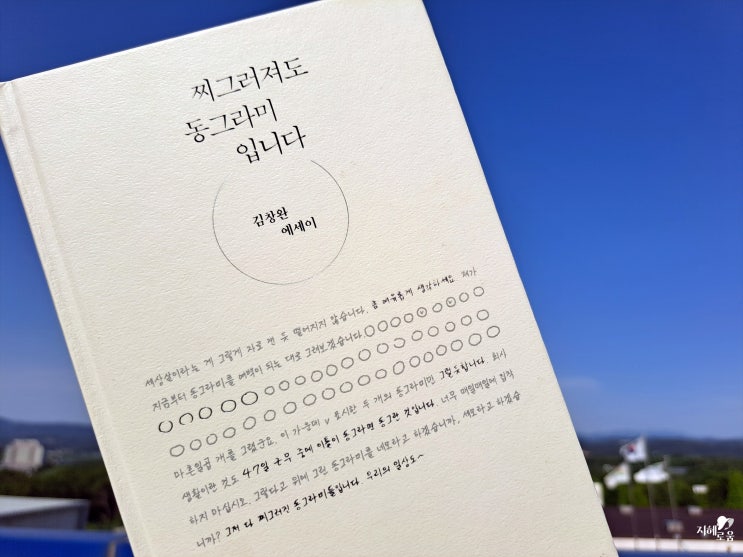 찌그러져도
동그라미
입니다
김창완
에세이
세상살이라는 게 그렇게 자로 잰 듯 떨어지지 않습니다. 좀 여유롭게 생각하세요. 제가
지금부터 동그라미를 여백이 되는 대로 그려보겠습니다.
마흔일곱 개를 그렸군요. 이 가운데 v 표시한 두 개의 동그라미만 그럴듯합니다. 회사
생활이란 것도 47일 근무 중에 이틀이 동그라면 동그란 것입니다. 너무 매일매일에 집착
하지 마십시오. 그렇다고 위에 그린 동그라미를 네모라고 하겠습니까, 세모라고 하겠습
니까? 그저 다 찌그러진 동그라미들입니다. 우리의 일상도~
지혜로움